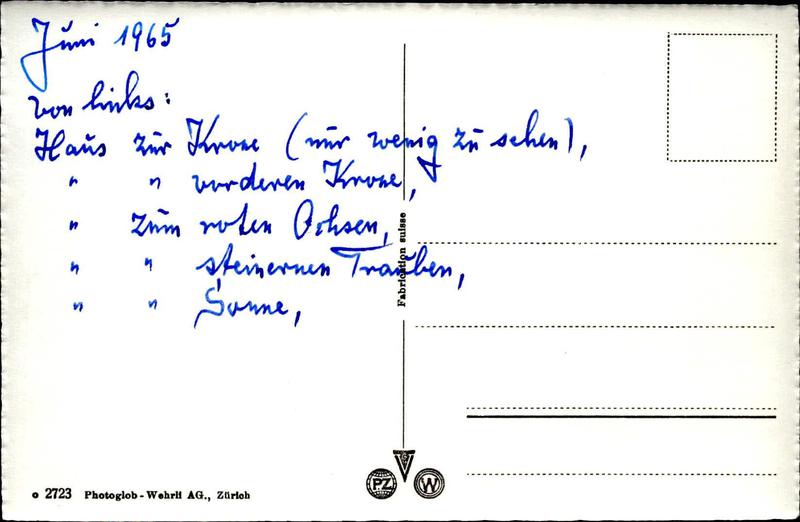 Juni 1965
von links:
Haus zur Krone (nur wenig zu sehen),
" " vorderen Krone,
" zum roten Ochsen,
" " steinernen Trauben,
" " Sonne,
Fabrication suisse
PZ W
o 2723 Photoglob-Wehrli AG., Zürich